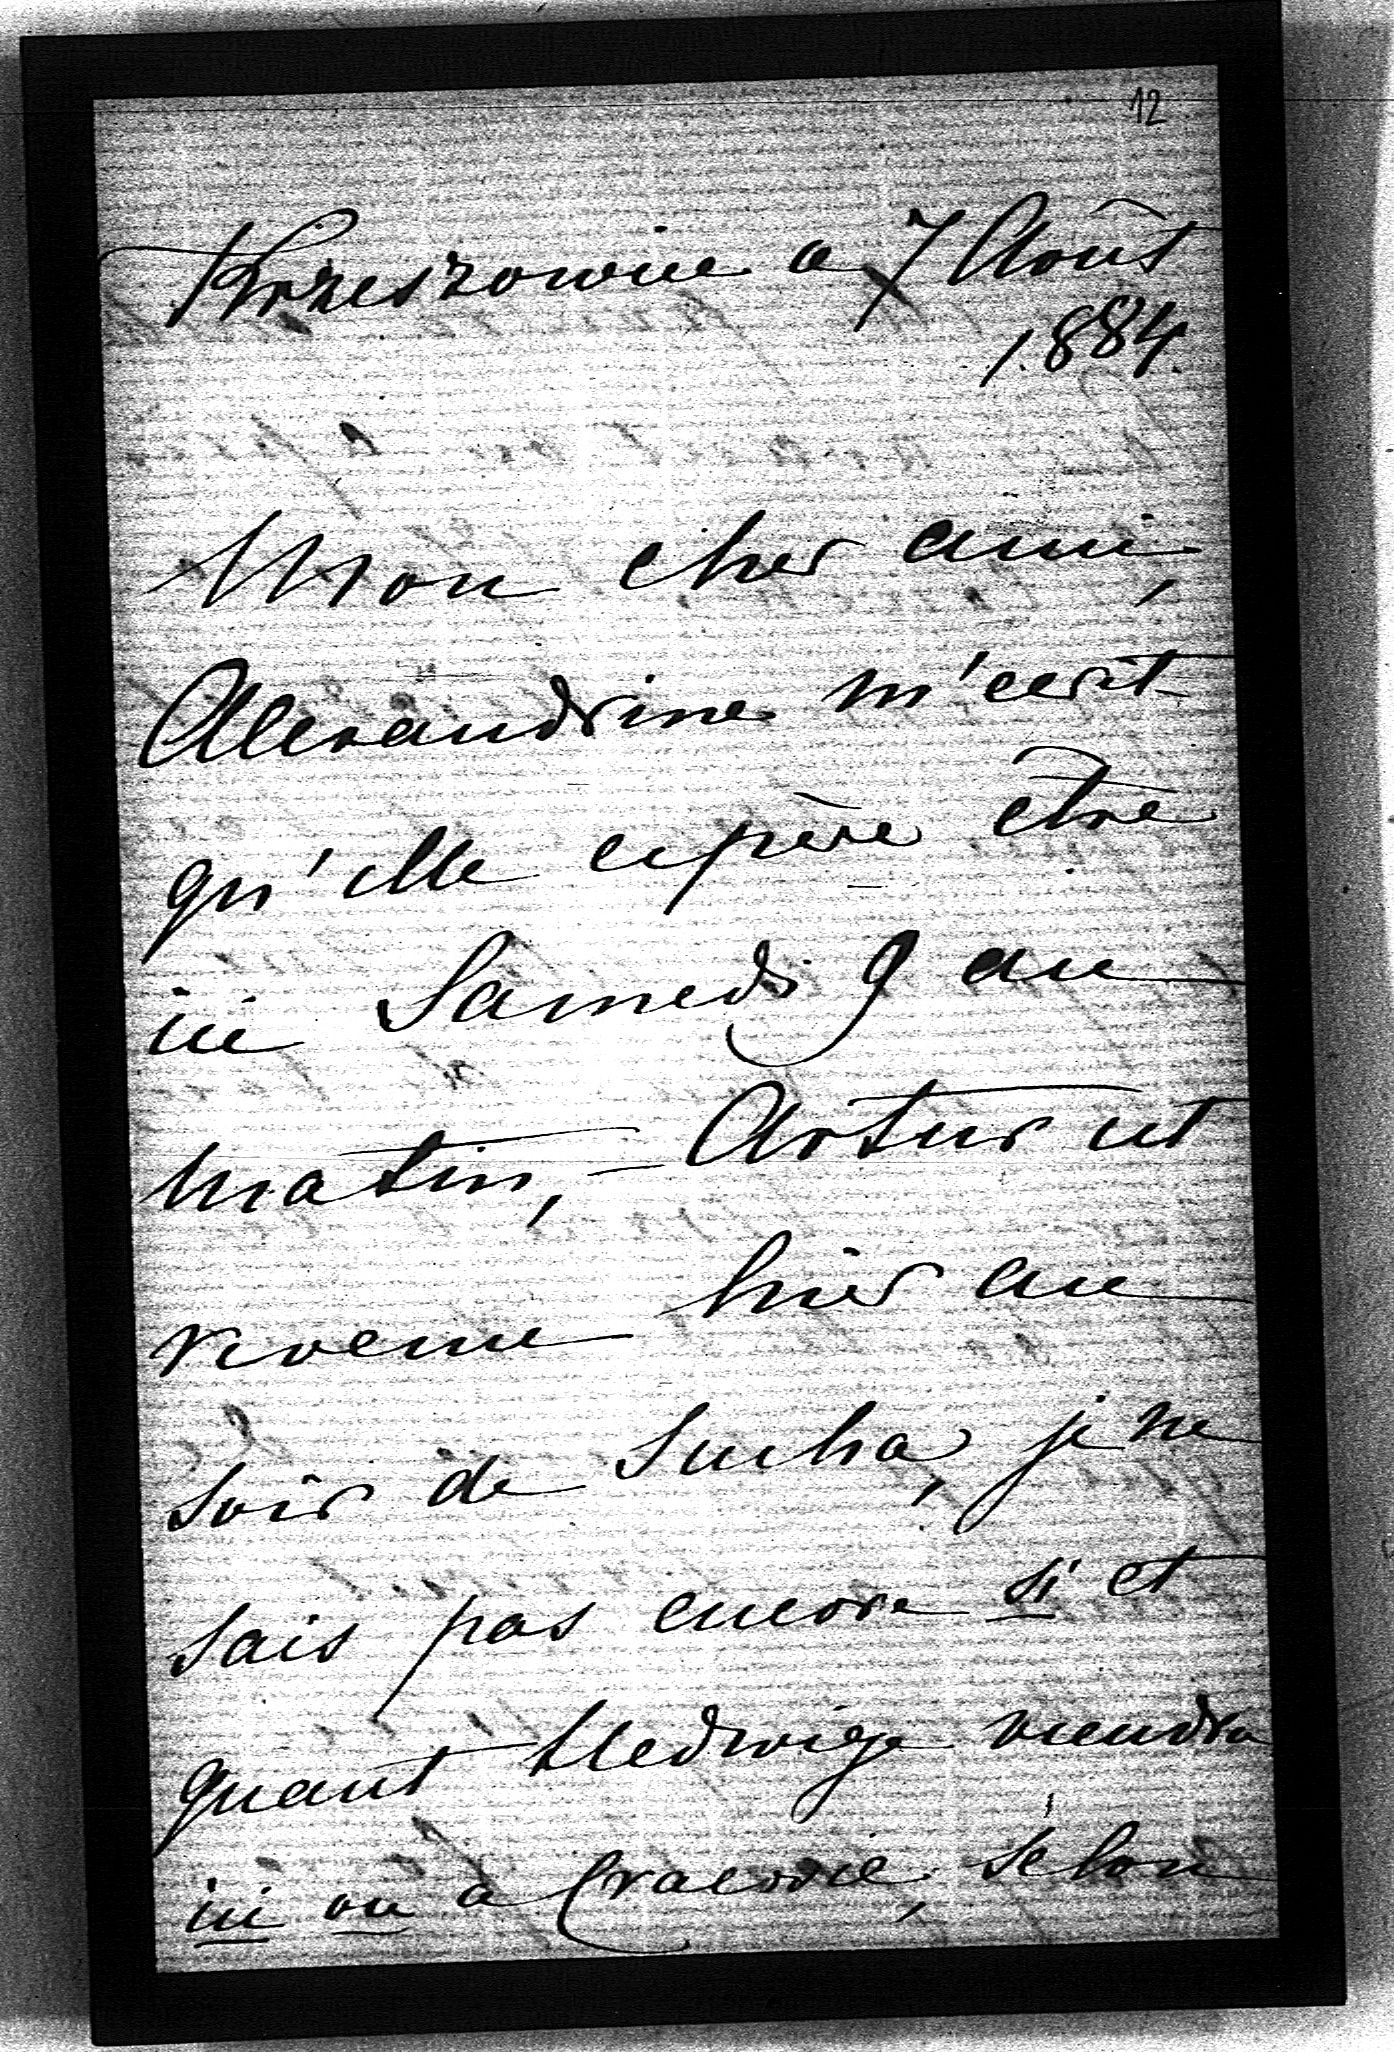 12
Krzeszowice a 7 Août
1884.
Mon cher ami,
Alexandrine m'ecrit
qu'elle espère être
ici Samedi 9 au
matin, – Artur est
revenu hier au
soir de Sucha, je ne
sais pas encore si et
quant Hedwige viendra
ici ou a Cracovie, sélon